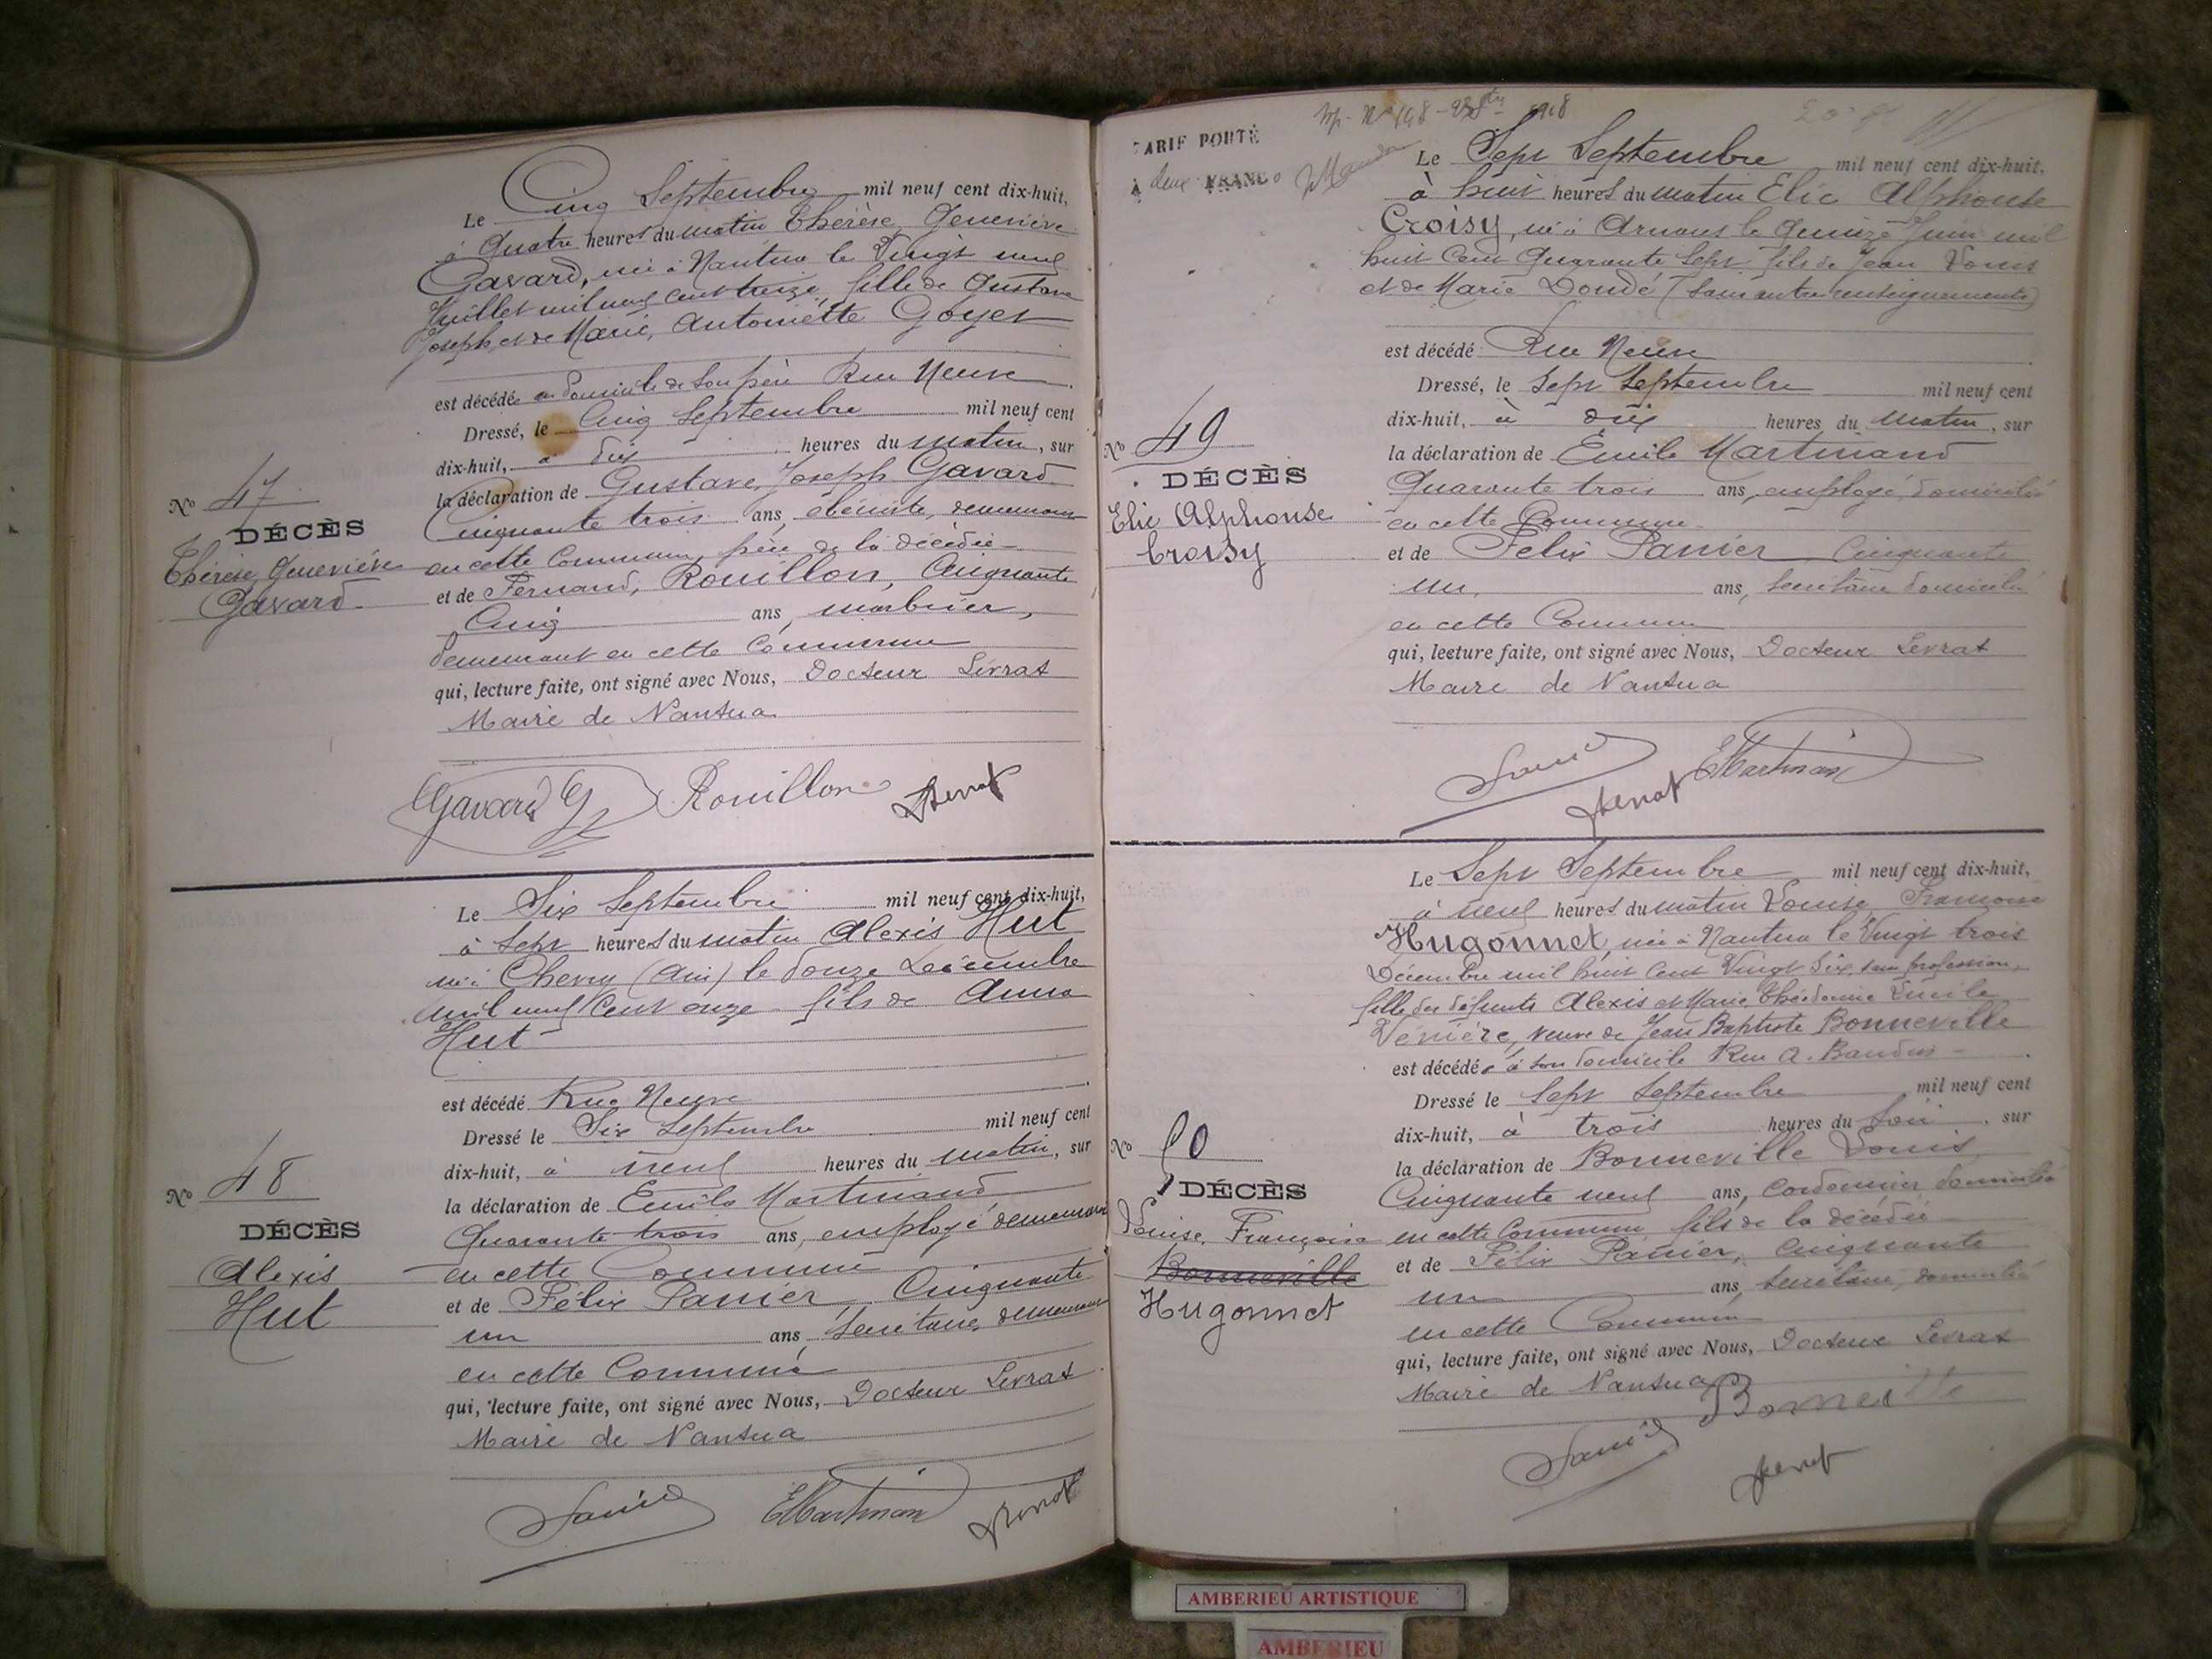 Le Cinq Septembre mil neuf cent dix-huit,
à Quatre heures du matin Thérèse, Geneviève
Gavard, née à Nantua le Vingt neuf
Juillet mil neuf cent treize, fille de Gustave
Joseph et de Marie, Antoinette Goyet
est décédée au domicile de son père Rue Neuve
Dressé, le Cinq Septembre mil neuf cent
dix-huit, à dix heures du matin, sur
la déclaration de Gustave, Joseph Gavard
Cinquante trois ans, ébéniste, demeurant
No 47
DÉCÈS
Thérèse, Geneviève
Gavard
en cette Commune, père de la décédée
et de Fernand, Rouillon, Cinquante
Cinq ans, marbrier,
demeurant en cette Commune
qui, lecture faite, ont signé avec Nous, Docteur Levrat
Maire de Nantua
Gavard G Rouillon Levrat
Le Six Septembre mil neuf cent dix-huit,
à Sept heures du matin Alexis Hut
né à Chevry (Ain) le douze Décembre
mil neuf cent onze fils de Anna
Hut
est décédé Rue Neuve
Dressé le Six Septembre mil neuf cent
dix-huit, à neuf heures du matin, sur
No 48
DÉCÈS
Alexis
Hut
la déclaration de Emile Martinand
Quarante trois ans, employé demeurant
en cette Commune
et de Félix Panier Cinquante
un ans, Secrétaire, demeurant
en cette Commune
qui, lecture faite, ont signé avec Nous, Docteur Levrat
Maire de Nantua
Panier EMartinand Levrat
TARIF PORTÉ
À deux FRANCS
Le Sept Septembre mil neuf cent dix-huit,
à huit heures du matin Elie Alphonse
Croisy, né à Arnans le Quinze Juin mil
huit Cent Quarante Sept fils de Jean Louis
et de Marie Doudé (sans autre renseignements)
est décédé Rue Neuve
Dressé, le Sept Septembre mil neuf cent
dix-huit, à dix heures du matin, sur
No 49
DÉCÈS
Elie Alphonse
Croisy
la déclaration de Emile Martinand
Quarante trois ans, employé, domicilié
en cette Commune
et de Felix Panier Cinquante
un, ans, Secrétaire domicilié
en cette Commune
qui, lecture faite, ont signé avec Nous, Docteur Levrat
Maire de Nantua
Panier Levrat EMartinand
Le Sept Septembre mil neuf cent dix-huit,
à neuf heures du matin Louise, Françoise
Hugonnet, née à Nantua le Vingt trois
Décembre mil huit Cent Vingt Six, sans profession,
fille des défunts Alexis et Marie Emile
veuve de Jean Baptiste Bonneville
est décédée à son domicile Rue A. Baudin
Dressé le Sept Septembre mil neuf cent
dix-huit, à trois heures du soir, sur
No 50
DÉCÈS
Louise, Françoise
Bonneville
Hugonnet
la déclaration de Bonneville Louis,
Cinquante neuf ans, Cordonnier domicilié
en cette Commune, fils de la décédée
et de Félix Panier, Cinquante
un ans, Secrétaire, domicilié
en cette Commune
qui, lecture faite, ont signé avec Nous, Docteur Levrat
Maire de Nantua
Panier Bonneville Levrat
AMBERIEU ARTISTIQUE
AMBERIEU